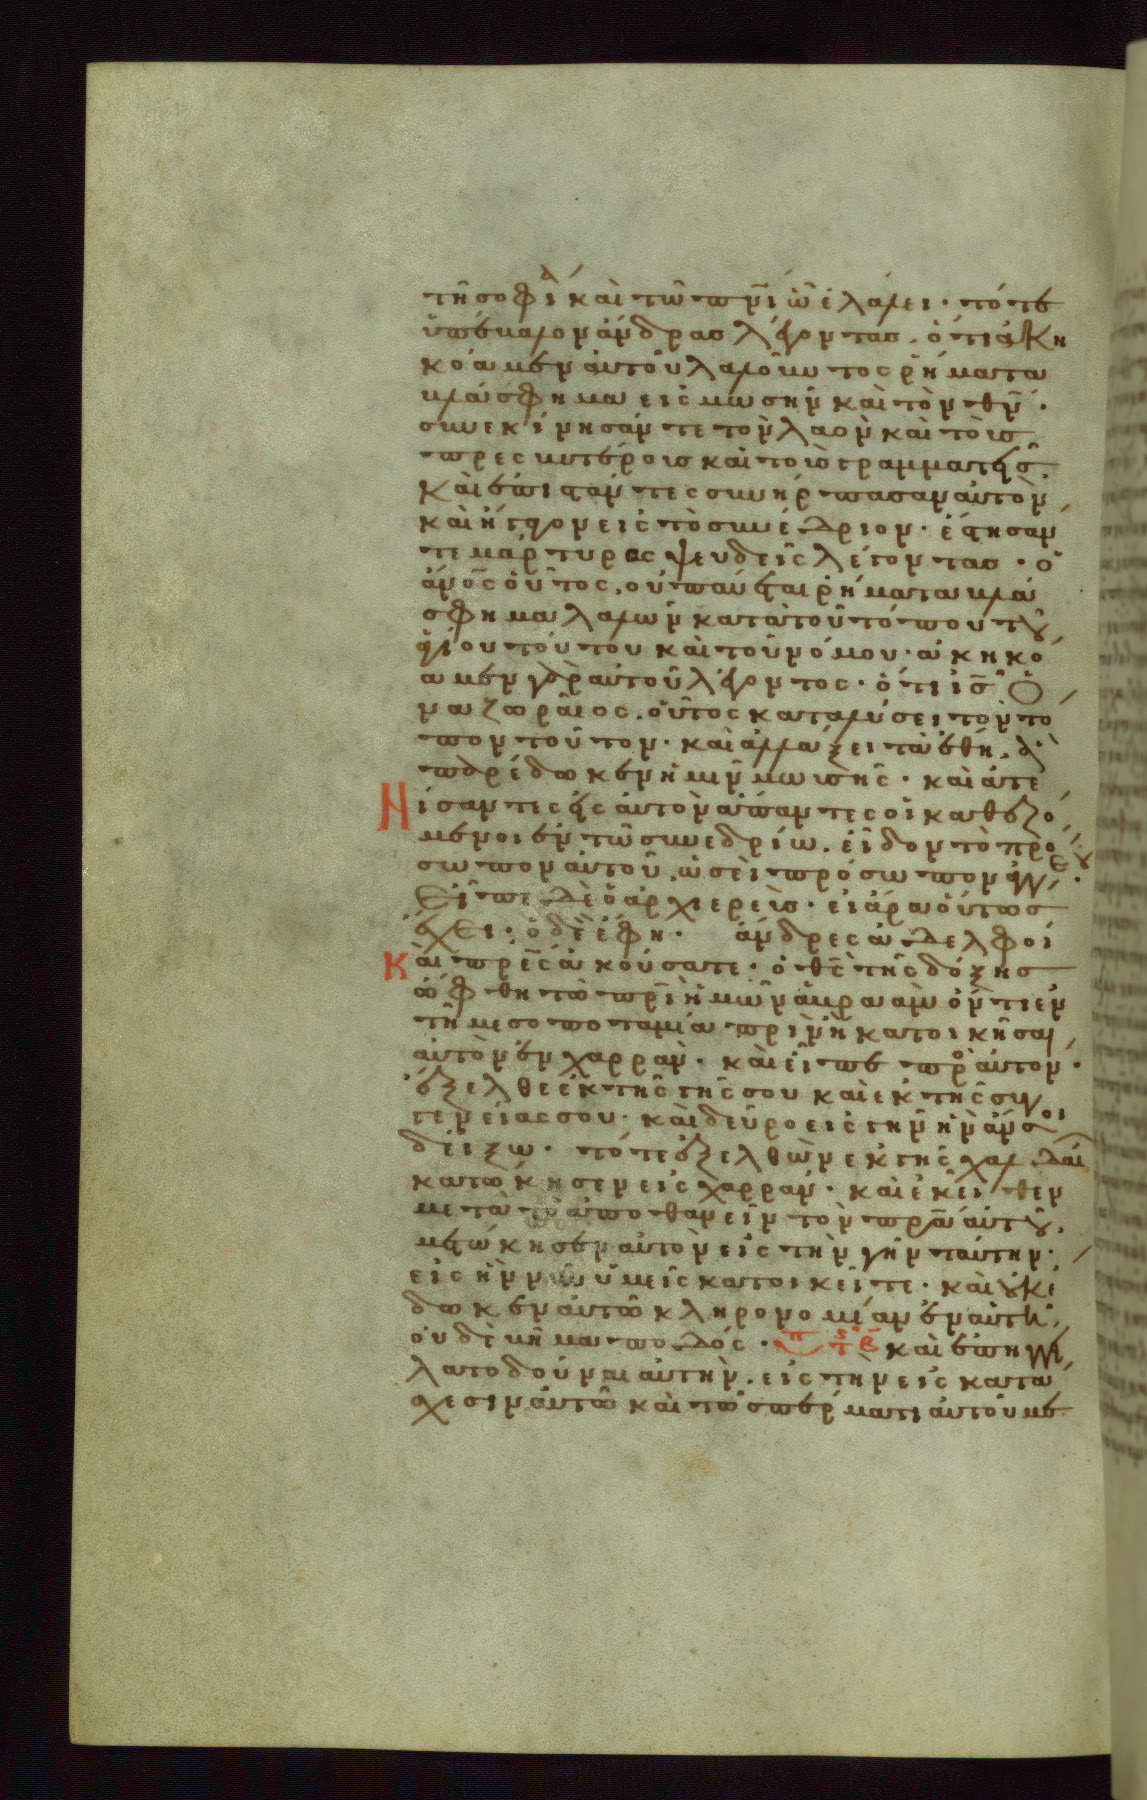 τῆ σοφία καὶ τῶ πν̅ι ὧ ἐλάλει· τότε
ὑπέβαλον ἄνδρας λέγοντας. ὅτι ἀκη
κόαμεν αὐτοῦ λαλοῦντος ῥήματα
βλάσφημα εἰς μωσῆν καὶ τὸν θν̅·
συνεκίνησάν τε τὸν λαὸν καὶ τοὺς
πρεσβυτέροις καὶ τοῖς γραμματεῖς.
καὶ ἐπιστάντες συνήρπασαν αὐτὸν
καὶ ἤγαγον εἰς τὸ συνέδριον· ἔστησαν
τε μάρτυρας ψευδεῖς λέγοντας· ὁ
ἄνος̅ οὗτος, οὐ παύεται ῥήματα βλά
σφημα λαλῶν κατὰ τοῦ τόπου τοῦ
ἁγίου τούτου καὶ τοῦ νόμου· ἀκηκό
αμεν γὰρ αὐτοῦ λέγοντος· ὅτι ις̅ ὁ
ναζωραῖος, οὗτος καταλύσει τὸν τό
πον τοῦτον· καὶ ἀλλάξει τὰ ἔθη, ἃ
παρέδωκεν ἡμῖν μωυσῆς· καὶ ἀτε
νίσαντες εἰς αὐτὸν ἅπαντες οἱ καθεζό
μενοι ἐν τῶ συνεδρίω, εἶδον τὸ πρό
σωπον αὐτοῦ, ὡσεὶ πρόσωπον ἀγγέλου·
Εἶπε δὲ ὁ ἀρχιερεὺς· εἰ ἄρα οὕτως
ἔχει· ὁ δὲ ἔφη· ἄνδρες ἀδελφοὶ
καὶ πρε̅ς ἀκούσατε· ὁ θς̅ τῆς δόξης
ὤφθη τῶ πρ̅ι ἡμῶν ἀβραὰμ ὄντι ἐν
τῆ μεσοποταμία πρὶν ἢ κατοικῆσαι
αὐτὸν ἐν χαρρὰν· καὶ εἶπε πρὸς αὐτόν·
ἔξελθε ἐκ τῆς γῆς σου καὶ ἐκ τῆς συγ
γενείας σου· καὶ δεῦρο εἰς γῆν ἣν ἄν σοι
δείξω· τότε ἐξελθὼν ἐκ γῆς χαλδαίων
κατώκησεν εἰς χαρράν· καὶ ἐκεῖθεν
μετὰ τὸ ἀποθανεῖν τὸν πρ̅α αὐτοῦ,
μετώκησεν αὐτὸν εἰς τὴν γῆν ταύτην·
εἰς ἣν νῦν ὑμεῖς κατοικεῖτε· καὶ οὐκ ἔ
δωκεν αὐτῶ κληρονομίαν ἐν αὐτῆ,
οὐδὲ βῆμα ποδός· καὶ ἐπηγγεί
λατο δοῦναι αὐτὴν, εἰς τὴν εἰς κατά
σχεσιν αὐτῶ καὶ τῶ σπέρματι αὐτοῦ με